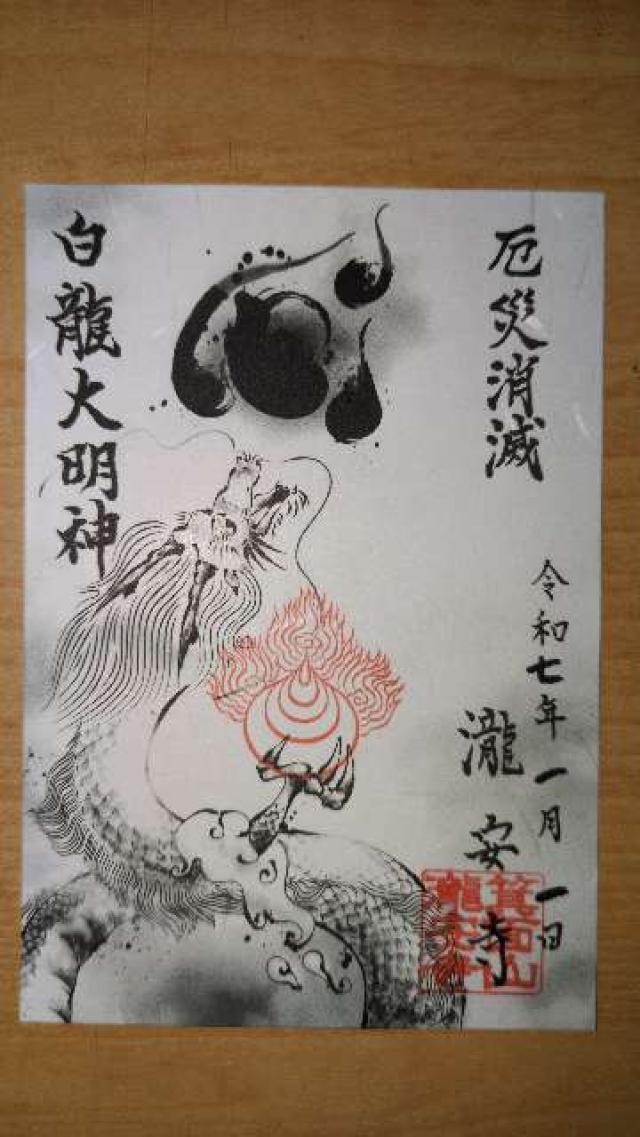 厄災消滅
令和七年一月一日
瀧安寺
白龍大明神
箕面山